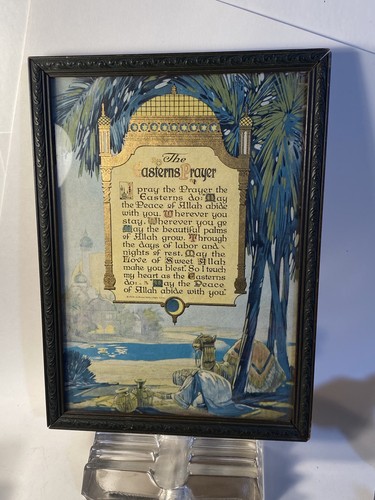 The
Easterns Prayer
I pray the Prayer the
Easterns do: May
the Peace of Allah abide
with you. Wherever you
stay, Wherever you go
May the beautiful palms
of Allah grow. Through
the days of labor and
nights of rest. May the
Love of Sweet Allah
make you blest. So I touch
my heart as the Easterns
do:- May the Peace
of Allah abide with you."